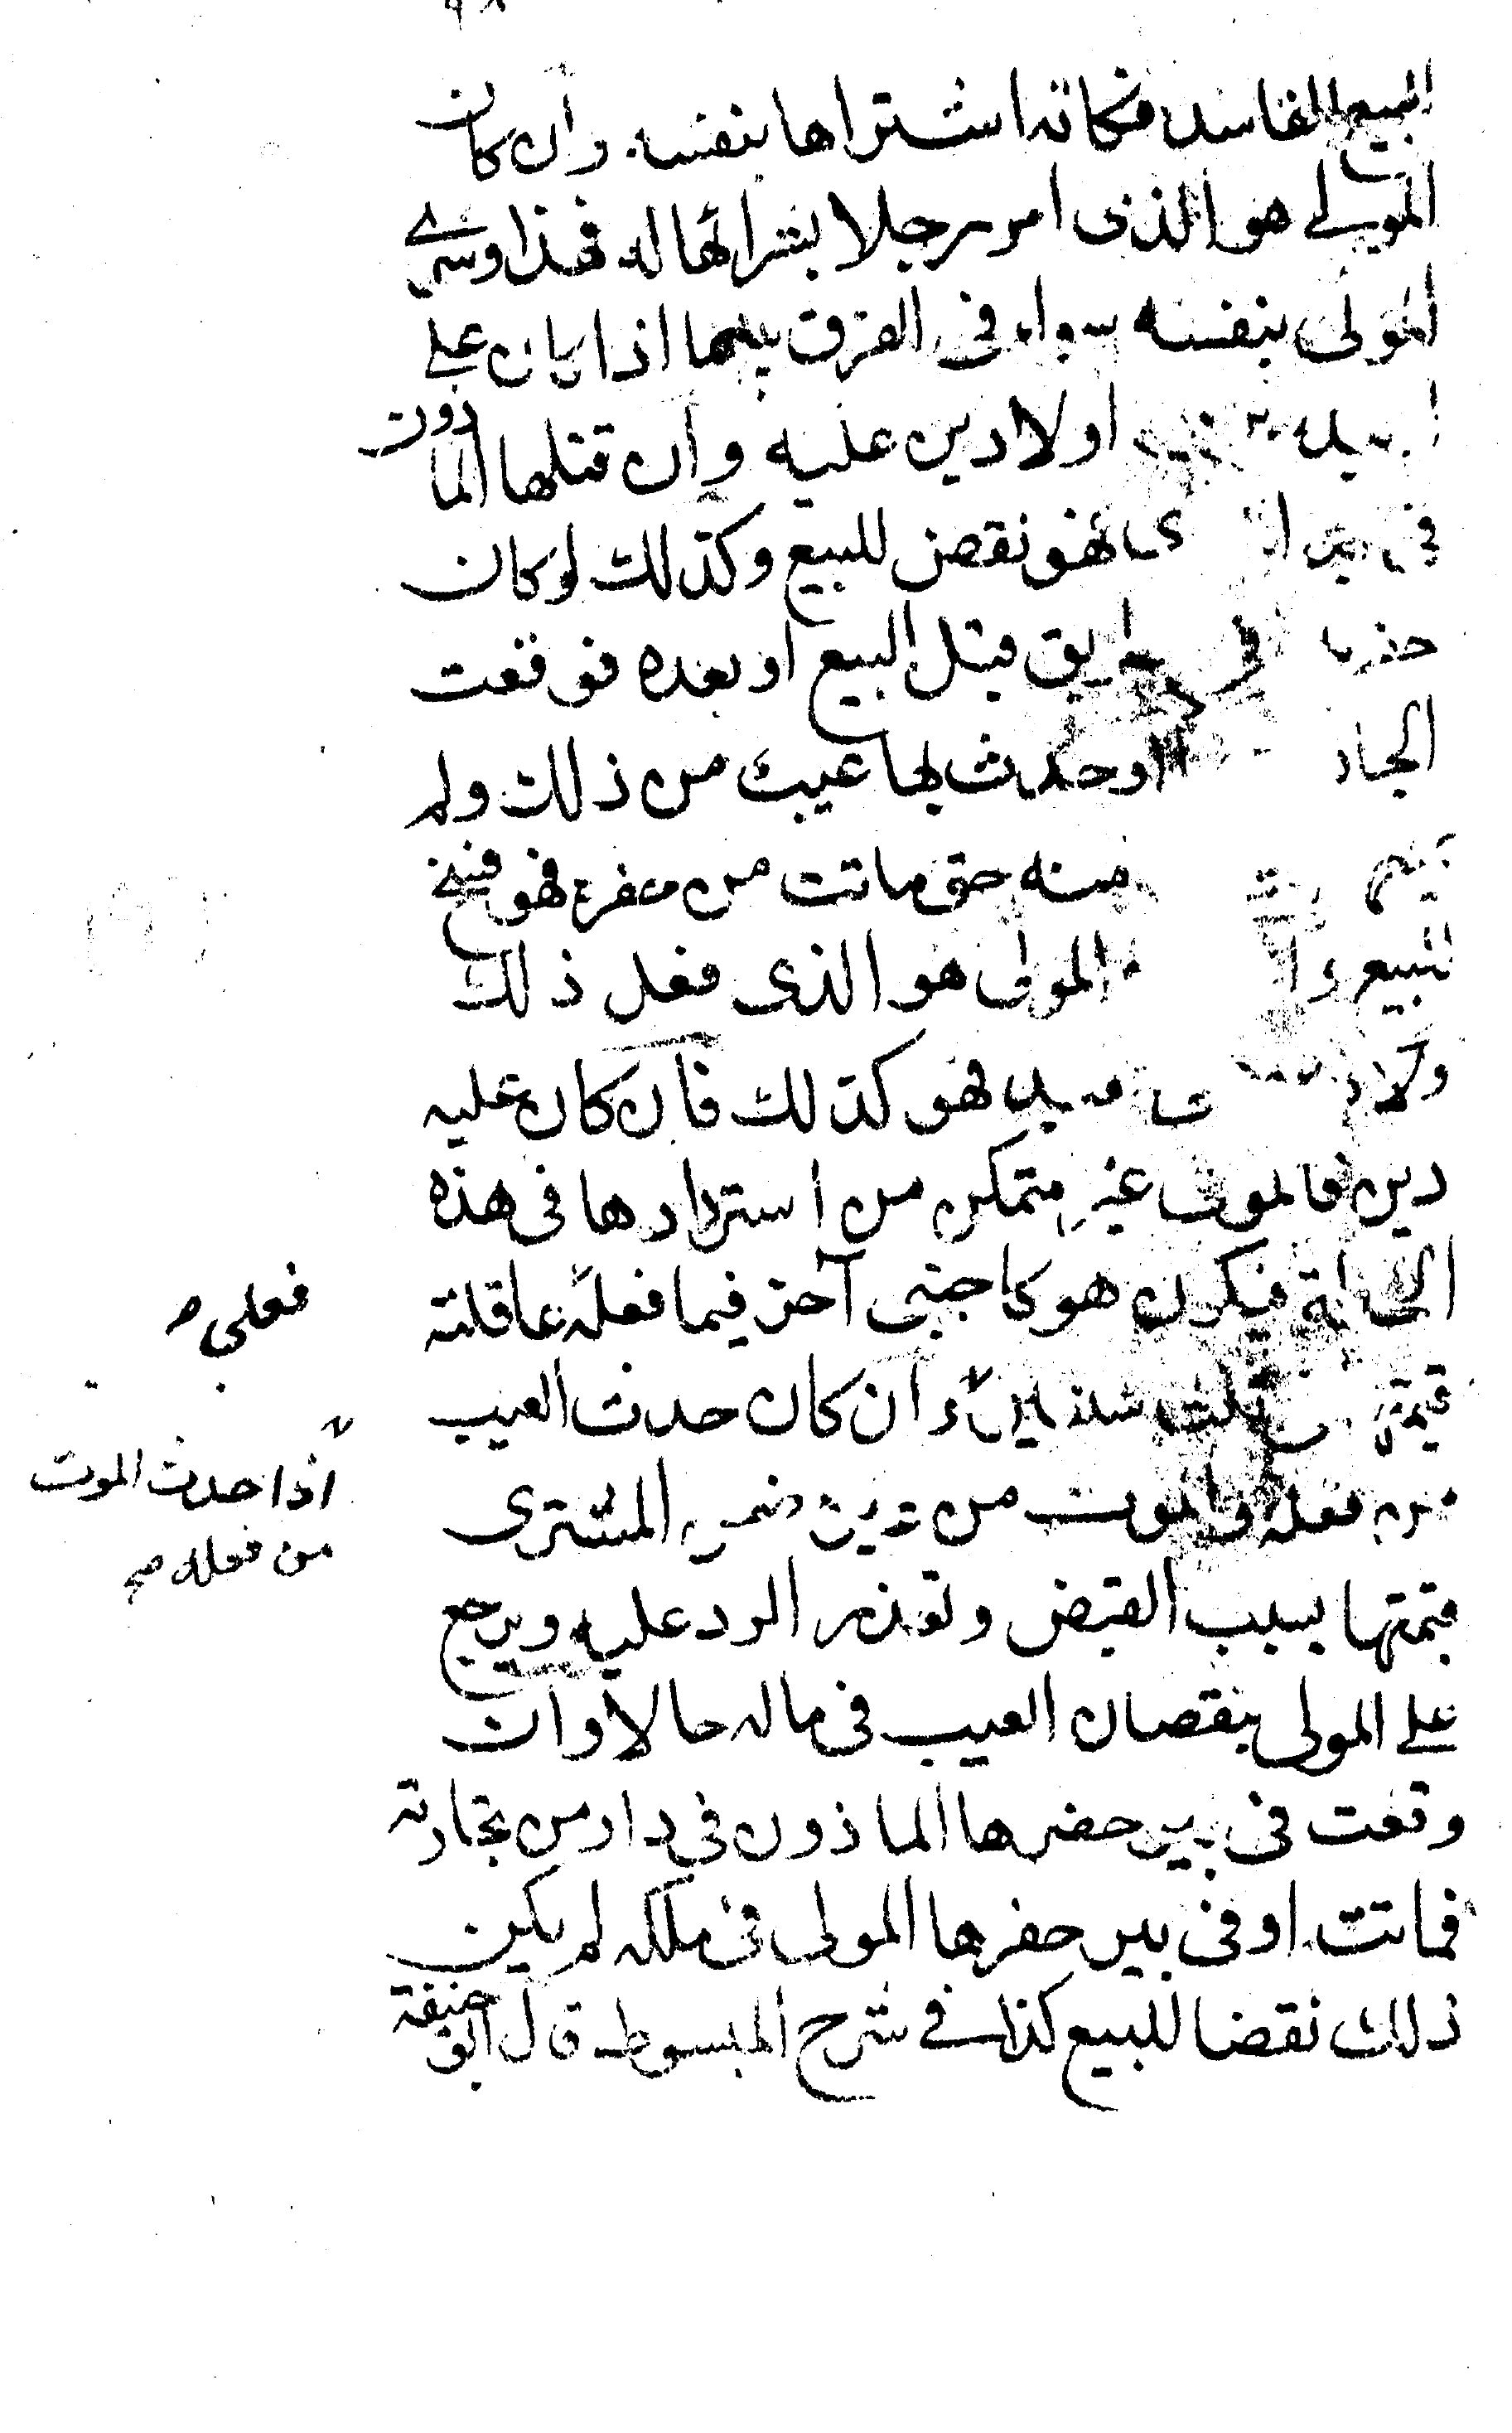 البيع الفاسد فكانه اشتراها بنفسه وان كان
المولى هو الذى امر رجلا بشرائها له فهذا وشرى
المولى بنفسه سواء فى الفرق بينهما اذا كان على
اولا دين عليه وان قتلها الماذون
فى يد فهو نقض للبيع وكذلك لو كان
حفر فى قبل البيع او بعده فوقعت
او حدث بها عيب من ذلك ولم
منه حتى ماتت من فهو فسخ
للبيع المولى هو الذى فعل ذلك
ولا فهو كذلك فان كان عليه
دين فالمولى غير متمكن من استردادها فى هذه
الحالة فيكون هو كاجنبى آخر فيما فعله عاقلته
قيمتها ثلث سنين وان كان حدث العيب
من فعله والموت من غيره ضمن المشترى
قيمتها بسبب القبض وتعذر الرد عليه ويرجع
على المولى بنقصان العيب فى ماله حالا وان
وقعت فى بير حفرها الماذون فى دار من تجارته
فماتت او فى بير حفرها المولى فى ملكه لم يكن
ذلك نقضا للبيع كذا فى شرح المبسوط قال ابو حنيفة
فعلى
اذا حدث الموت
من فعله صح